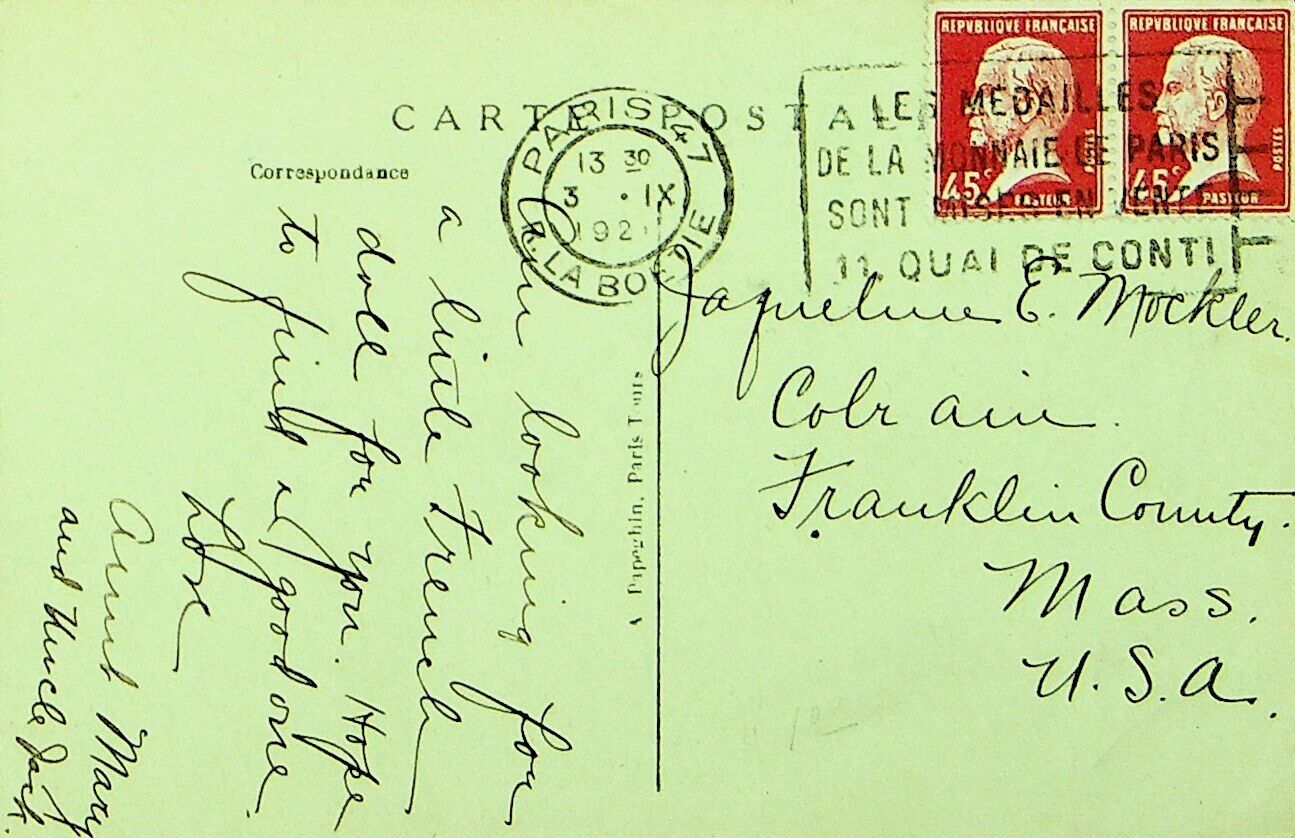 CARTE POSTALE
Correspondance
REPVBLIQVE FRANÇAISE
45c
POSTES
PASTEUR
REPVBLIQVE FRANÇAISE
45c
POSTES
PASTEUR
PARIS 47
13 30
3 . IX
192
R. LA BOETIE
LES MEDAILLES
DE LA MONNAIE DE PARIS
SONT MISES EN VENTE
11, QUAI DE CONTI
Am looking for
a little French
doll for you. Hope
to find a good one.
Love
Aunt Mary
and Uncle Jack.
A Papeghin, Paris Tours
Jaqueline E. Mockler.
Colrain.
Franklin County.
Mass.
U.S.A.